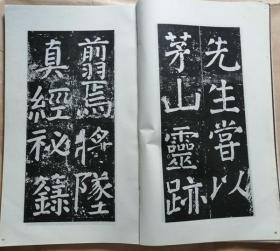 先生嘗以
茅山靈跡
翦焉將墜
真經祕籙